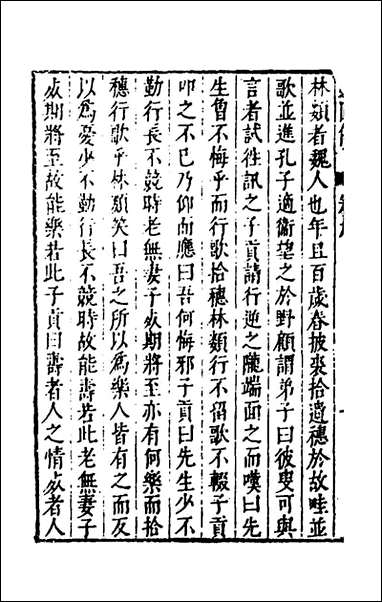 林類者魏人也年且百歲春披裘拾遺穗於故畦並
歌並進孔子適衛望之於野顧謂弟子曰彼叟可與
言者試徃訊之子貢請行逆之隴端面之而嘆曰先
生曾不悔乎而行歌拾穗林類行不留歌不輟子貢
叩之不已乃仰而應曰吾何悔邪子貢曰先生少不
勤行長不競時老無妻子死期將至亦有何樂而拾
穗行歌乎林類笑曰吾之所以為樂人皆有之而反
以為憂少不勤行長不競時故能壽若此老無妻子
死期將至故能樂若此子貢曰壽者人之情死者人